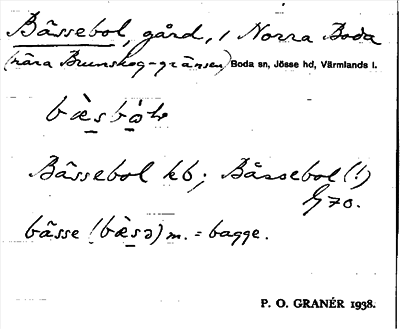 Bässebol, gård, i Norra Boda
(nära Brunskog-gränsen) Boda sn, Jösse hd, Värmlands l.
Bässebol kb; Båssebol (!)
G 70.
bässe (bæ̀sə) m. = bagge.
P. O. GRANÉR 1938.